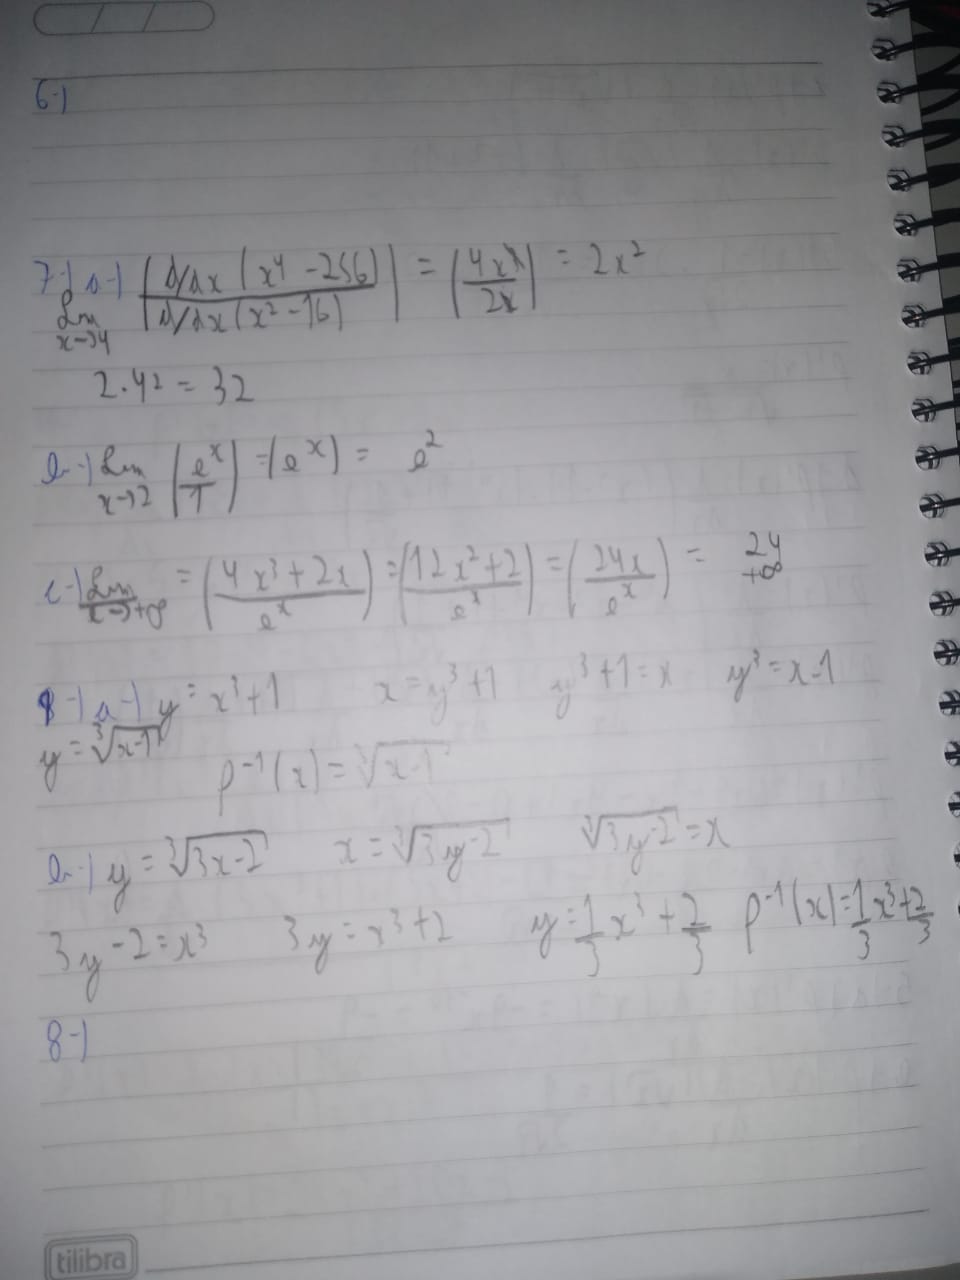 6-)
7-) a-) lim x→4 (d/dx (x⁴ - 256) / d/dx (x² - 16)) = (4x³ / 2x) = 2x²
2·4² = 32
b-) lim x→2 (eˣ / 1) = (eˣ) = e²
c-) lim x→+∞ = (4x³ + 2x / eˣ) = (12x² + 2 / eˣ) = (24x / eˣ) = 24 / +∞
8-) a-) y = x³ + 1 x = y³ + 1 y³ + 1 = x y³ = x - 1
y = ∛(x-1)
f⁻¹(x) = ∛(x-1)
b-) y = ∛(3x-2) x = ∛(3y-2) ∛(3y-2) = x
3y - 2 = x³ 3y = x³ + 2 y = 1/3 x³ + 2/3 f⁻¹(x) = 1/3 x³ + 2/3
8-)
tilibra